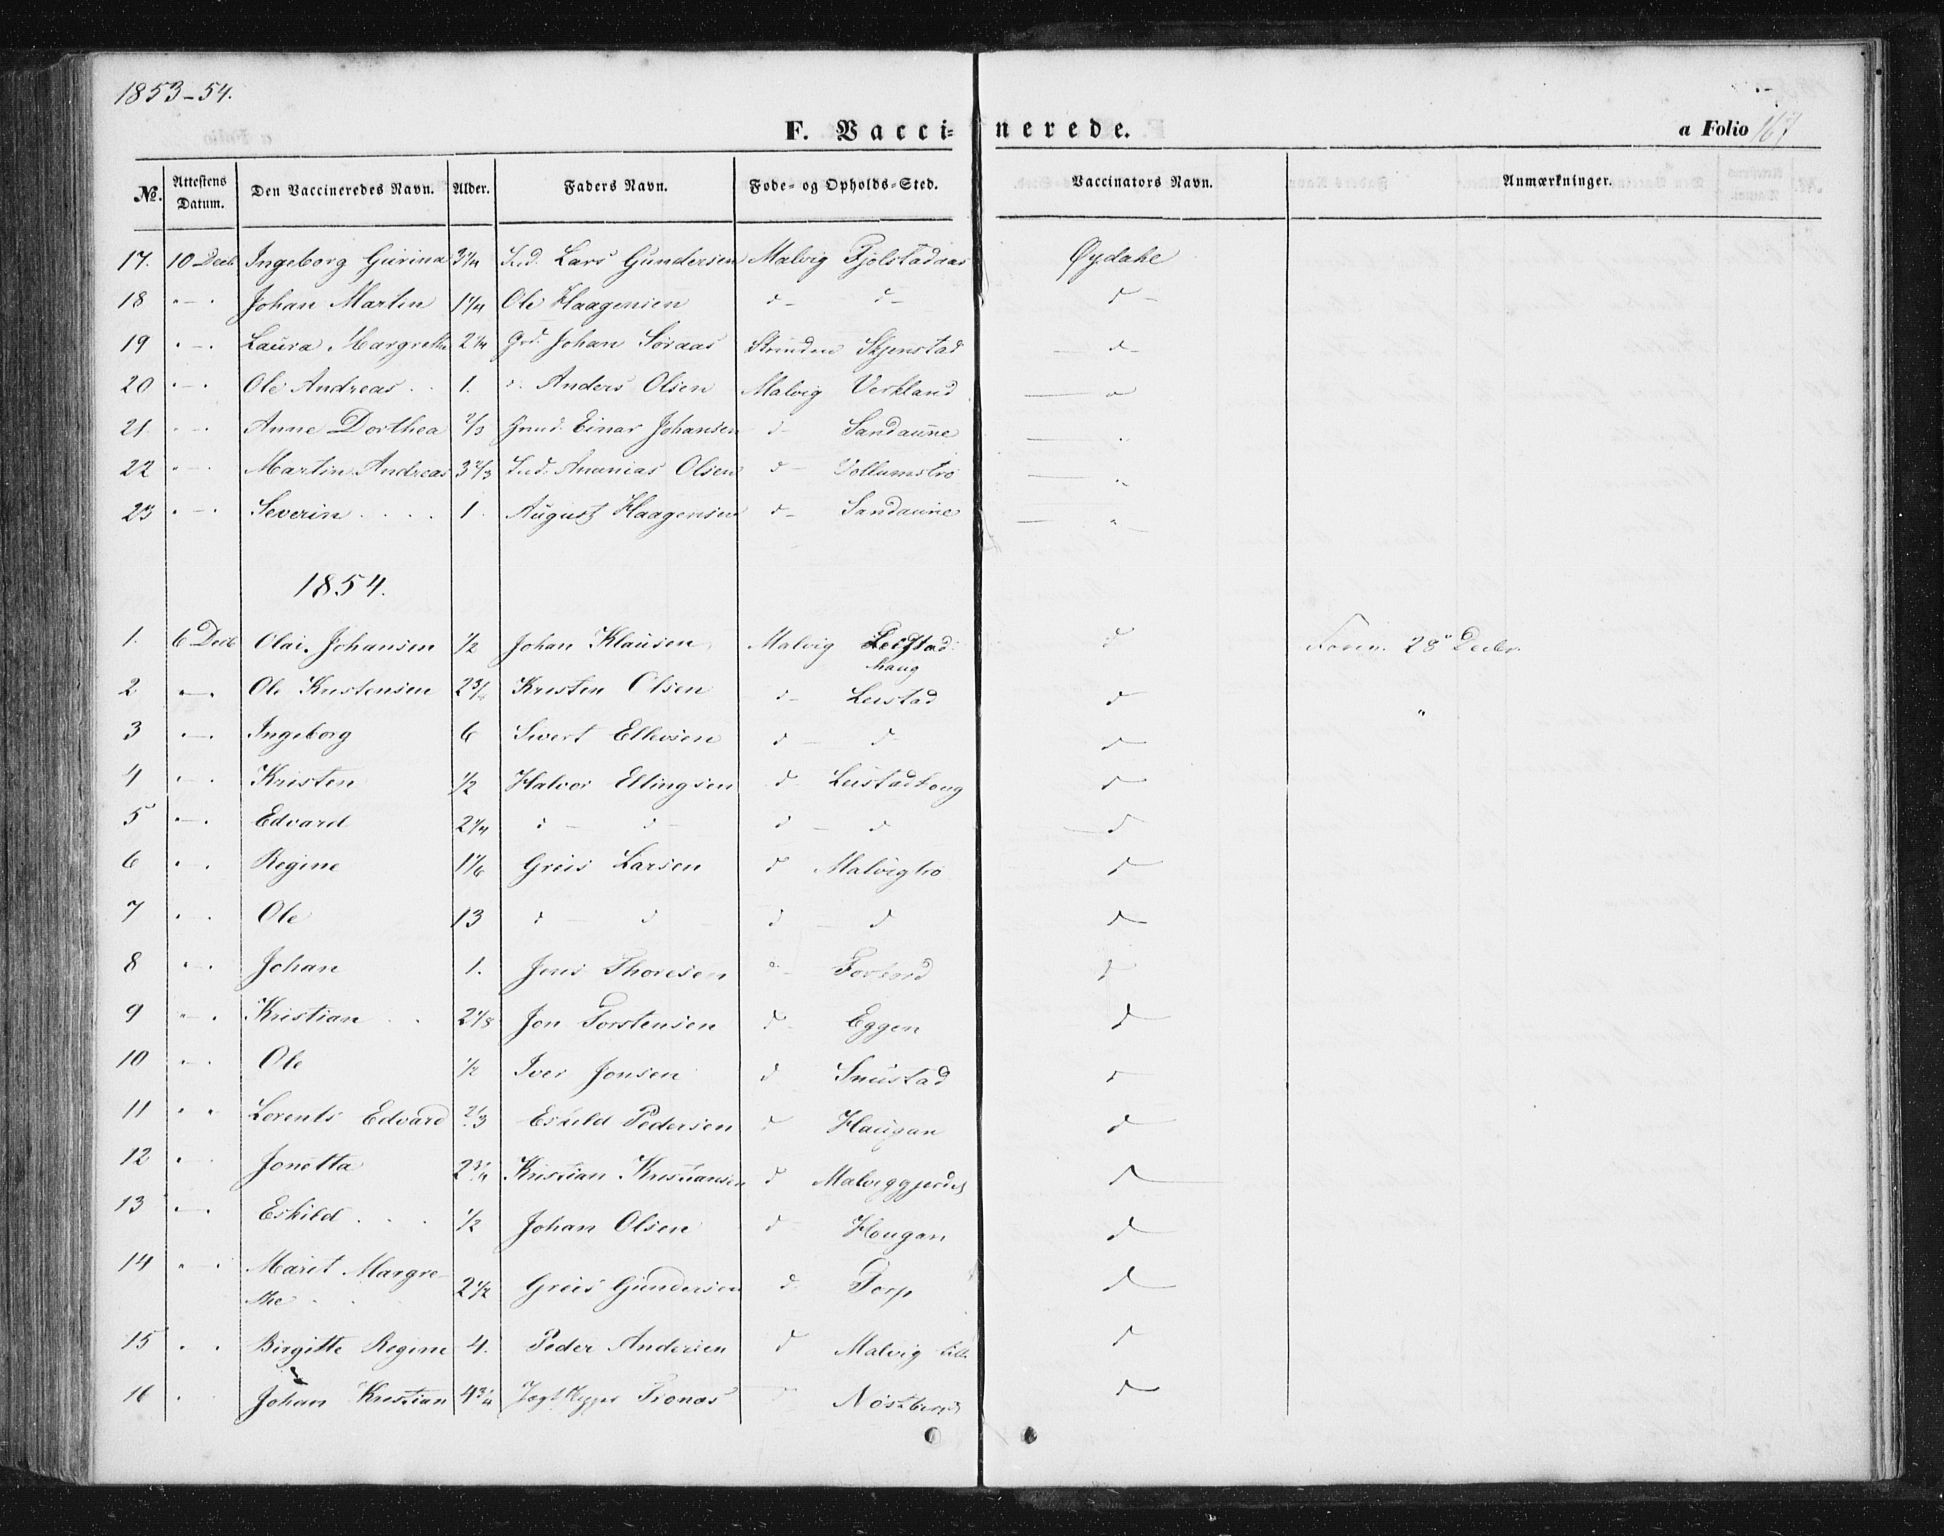 1853-54.
F. Vacci= nerede. a Folio 167
№. Attestens Datum. Den Vaccineredes Navn. Alder. Faders Navn. Føde- og Opholds-Sted. Vaccinators Navn. Anmærkninger.
17. 10 Decb Ingeborg Gurina 3 1/4 Ind. Lars Gundersen Malvig Øydahe
18 " - " Johan Martin 1 1/4 Ole Haagensen d- d- d-
19 " - " Laura Margrethe 2 1/4 Grd. Johan Søraas Strinden Skjenstad - d-
20 " - " Ole Andreas . . 1. " Anders Olsen Malvig Verkland "
21 " - " Anne Dorthea 2/3 Grmd. Einar Johansen d- Sandaune "
22 " - " Martin Andreas 3 2/3 Ind. Ananias Olsen d- "
23 " - " Severin . . . . 1. August Haagensen d- Sandaune "
1854.
1. 6 Decb Olai Johansen 1/2 Johan Klausen Malvig Leistad d 28 Decbr.
haug
2 " - " Ole Kristensen 2 3/4 Kristen Olsen d- Leistad d "
3 " - " Ingeborg 6 Sivert Ellevsen d - d- d
4 " - " Kristen 1/2 Halvor Ellingsen d Leistadhoug d
5 " - " Edvard 2 1/4 d - d- d - d d
6 " - " Regine 1 1/6 Greis Larsen d Malvigtrø d
7 " - " Ole 13 d - d d - d d
8 " - " Johan 1. Jens Thoresen " - Forbord d
9 " - " Kristian . . 2 1/8 Jon Torstensen d- Eggen d
10 " - " Ole 1/2 Iver Jonsen d Snustad d
11 " " Lorents Edvard 2/3 Eskild Pedersen d- Haugan d
12 " - Jonetta 2 3/4 Kristian Kristiansen d Malviggjerdet d
13 " - " Eskild . . . 1/2 Johan Olsen d- Hougan d
14 " - " Marit Margre-
the . . 2 1/2 Greis Gundersen d- Torp d
15 " " Birgitte Regine 4. Peder Andersen d Malvig Lille d
16 " Johan Kristian 4 3/4 d